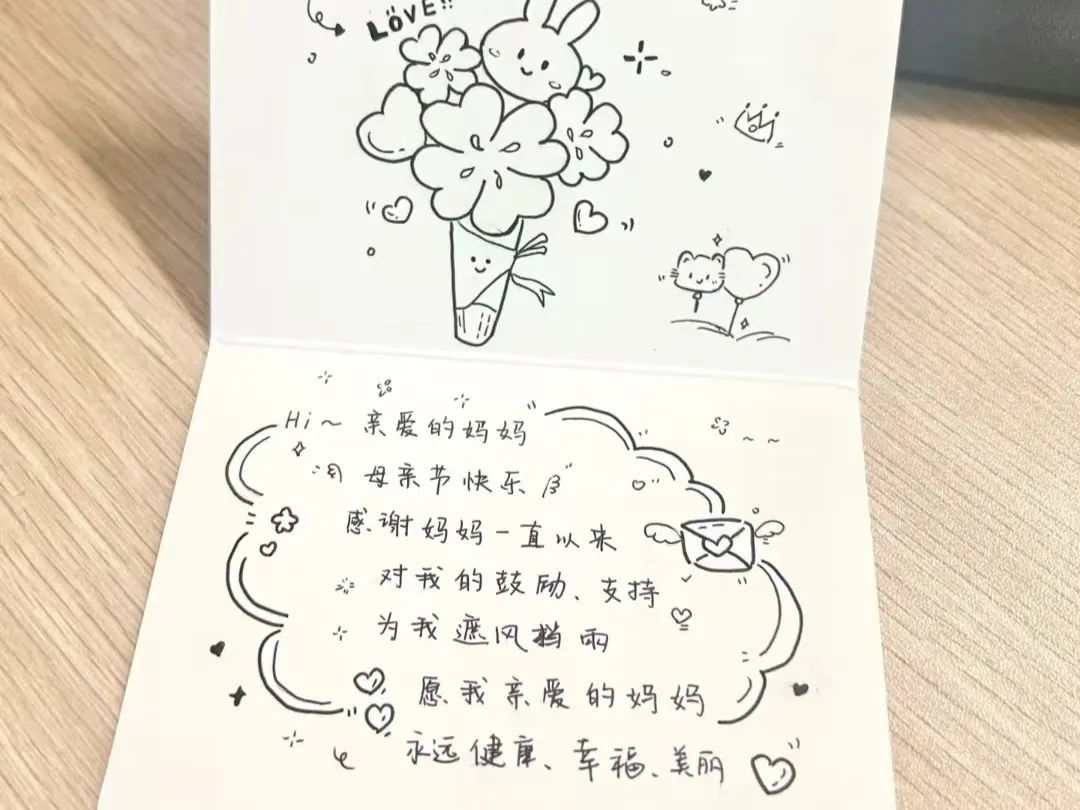 LOVE!!
Hi~ 亲爱的妈妈
母亲节快乐
感谢妈妈一直以来
对我的鼓励、支持
为我遮风挡雨
愿我亲爱的妈妈
永远健康、幸福、美丽